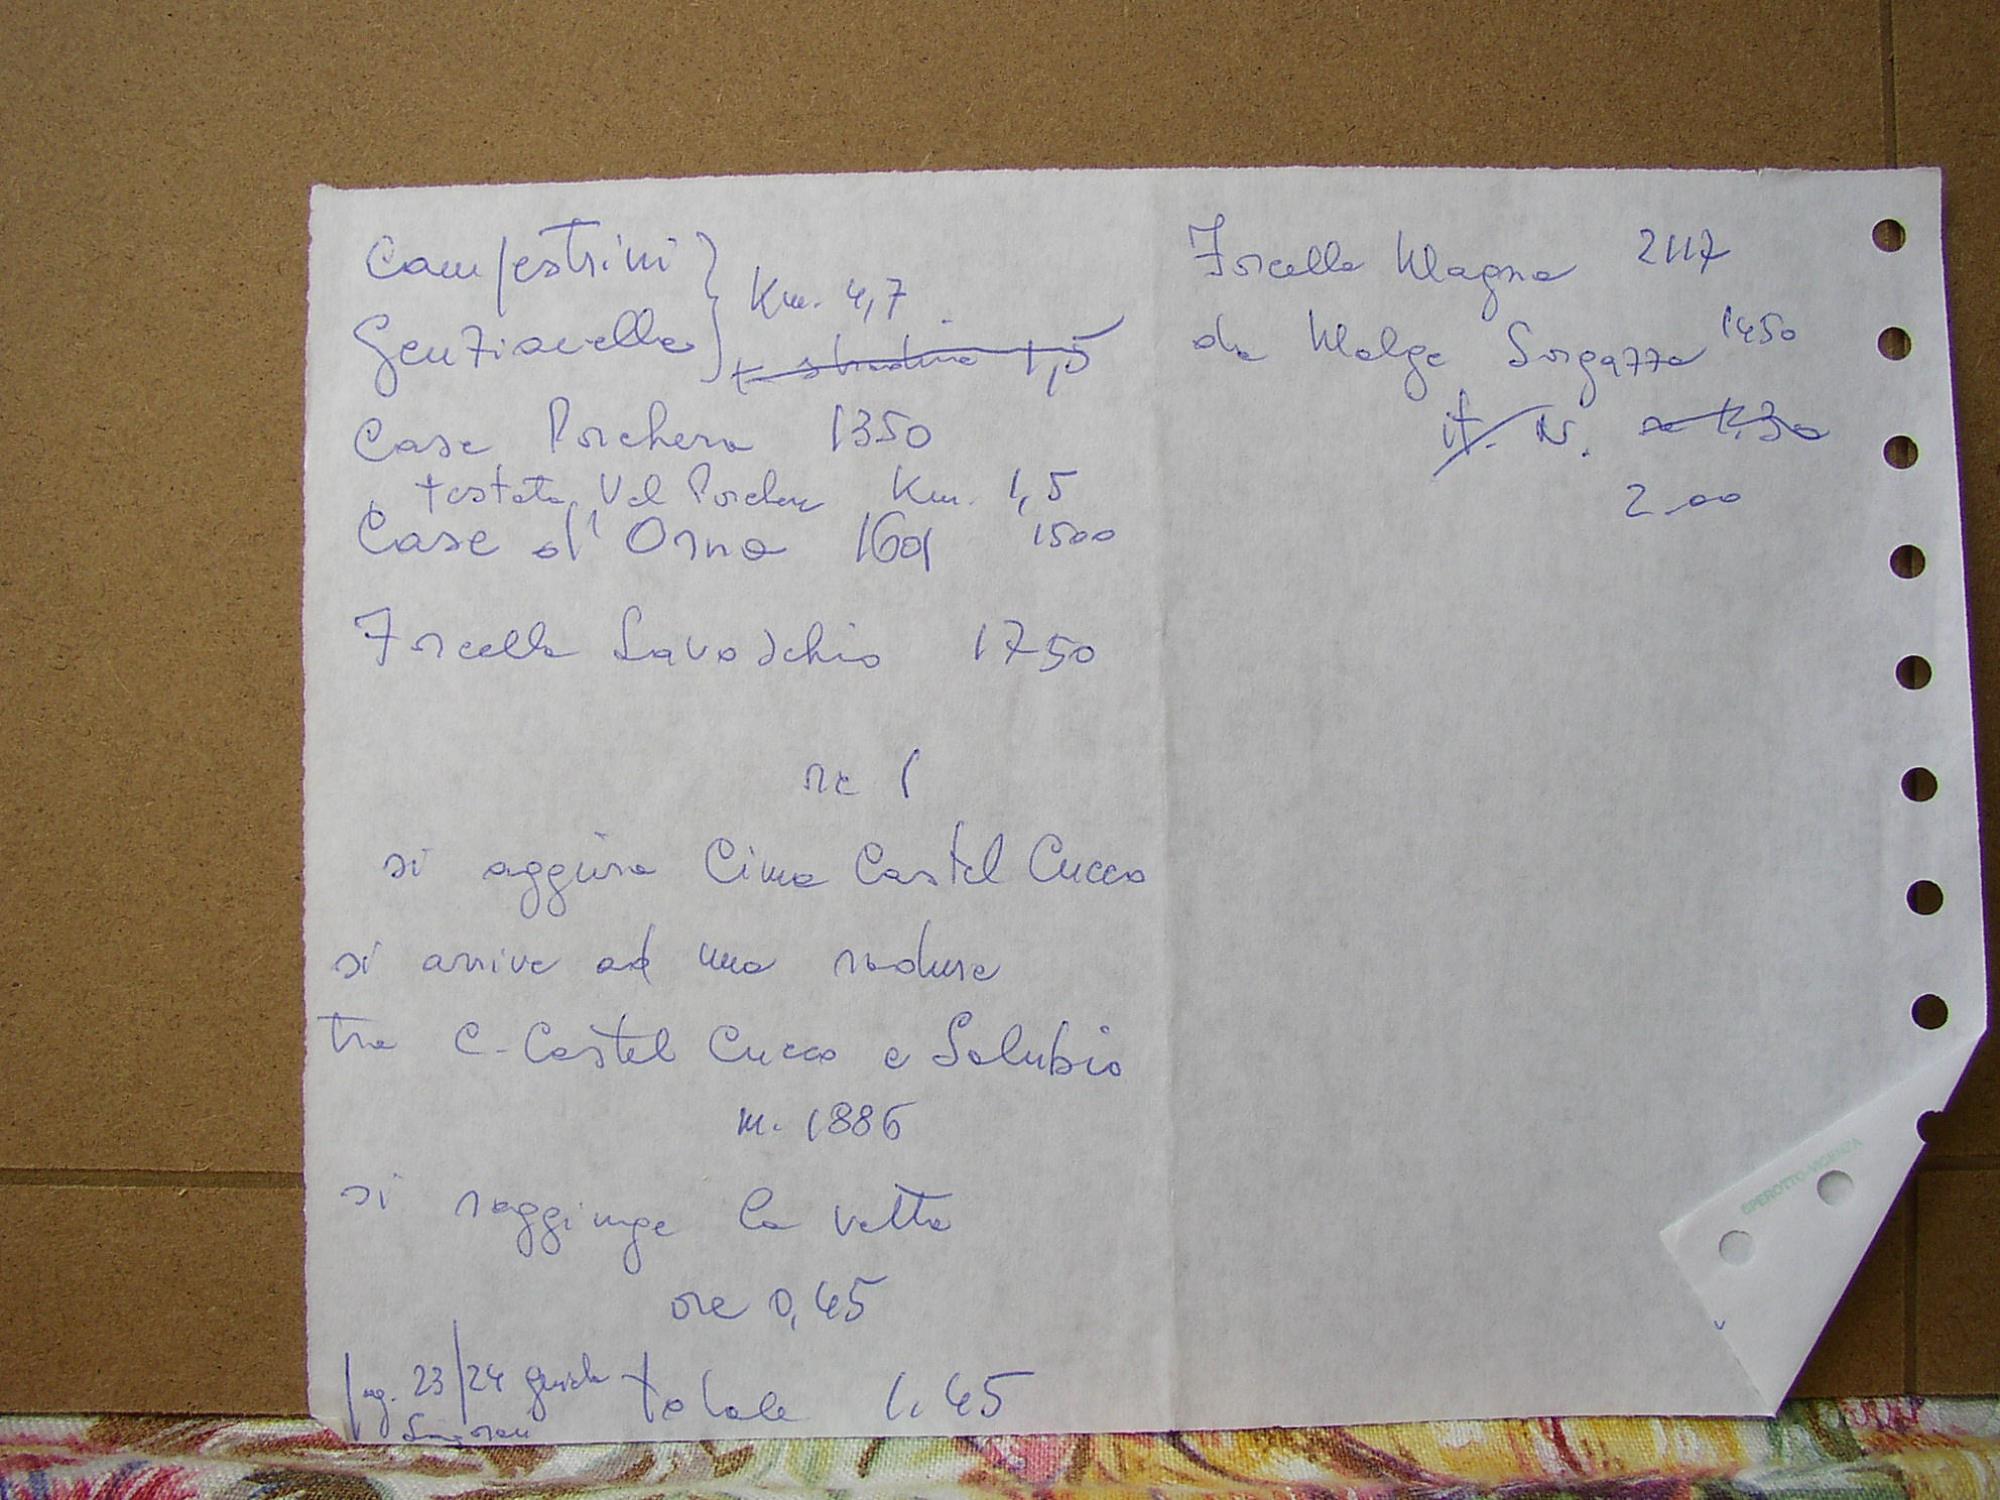 Campestrini
Genzianella
Km. 4,7
+ stradina 1,5
Case Porchera 1350
testata Val Porchera Km. 1,5
Case d'Orna 1601 1500
Forcella Lavoschio 1750
ore 1
si aggira Cima Castel Cucco
si arriva ad una radura
tra C. Castel Cucco e Salubio
m. 1886
si raggiunge la vetta
ore 0,45
pag. 23/24 guida
totale 1.45
Forcella Magna 2117
da Malga Sorgazza 1450
it. N. 1.30
2.00
SPEROTTO-VICENZA